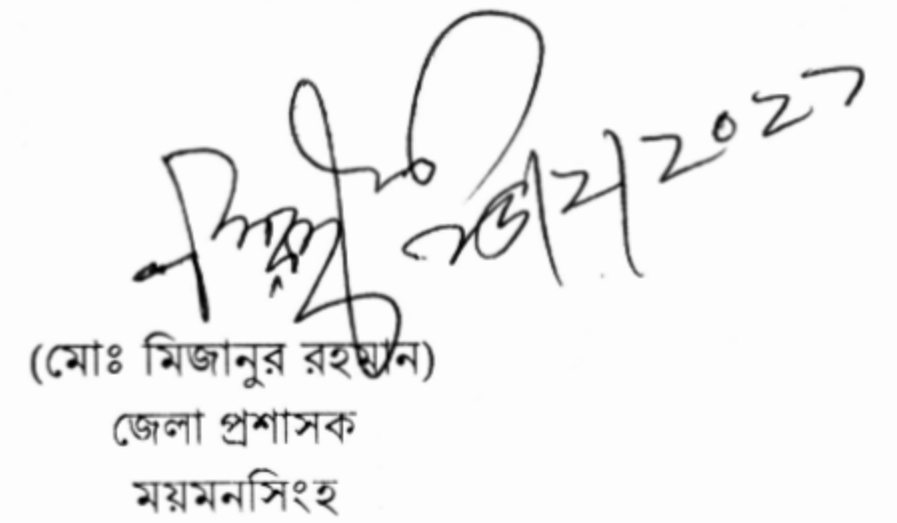 (মোঃ মিজানুর রহমান)
জেলা প্রশাসক
ময়মনসিংহ